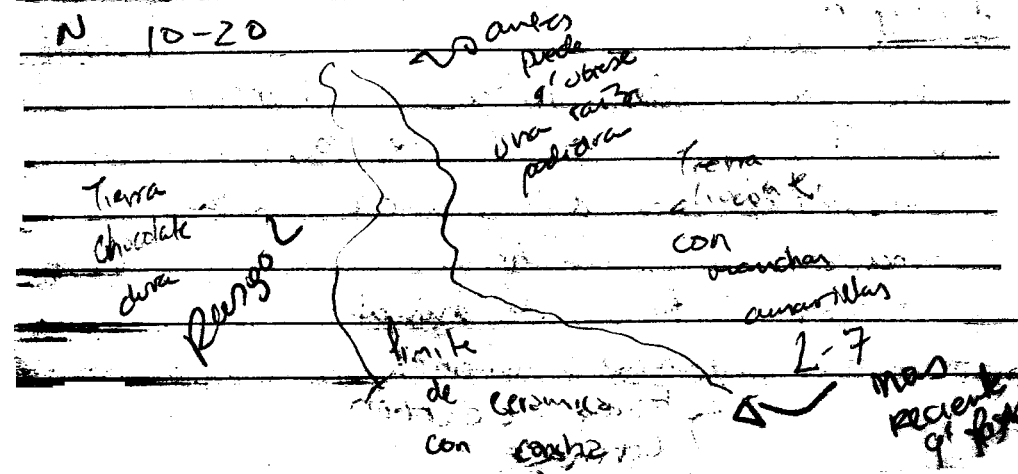 N 10-20
antes
puede
q' ubiese
una
Tierra
chocolate
dura
Rasgo 2
Tierra
chocolate
con
manchas
amarillas
2-7
limite
de ceramica
con concha
mas
reciente
q'